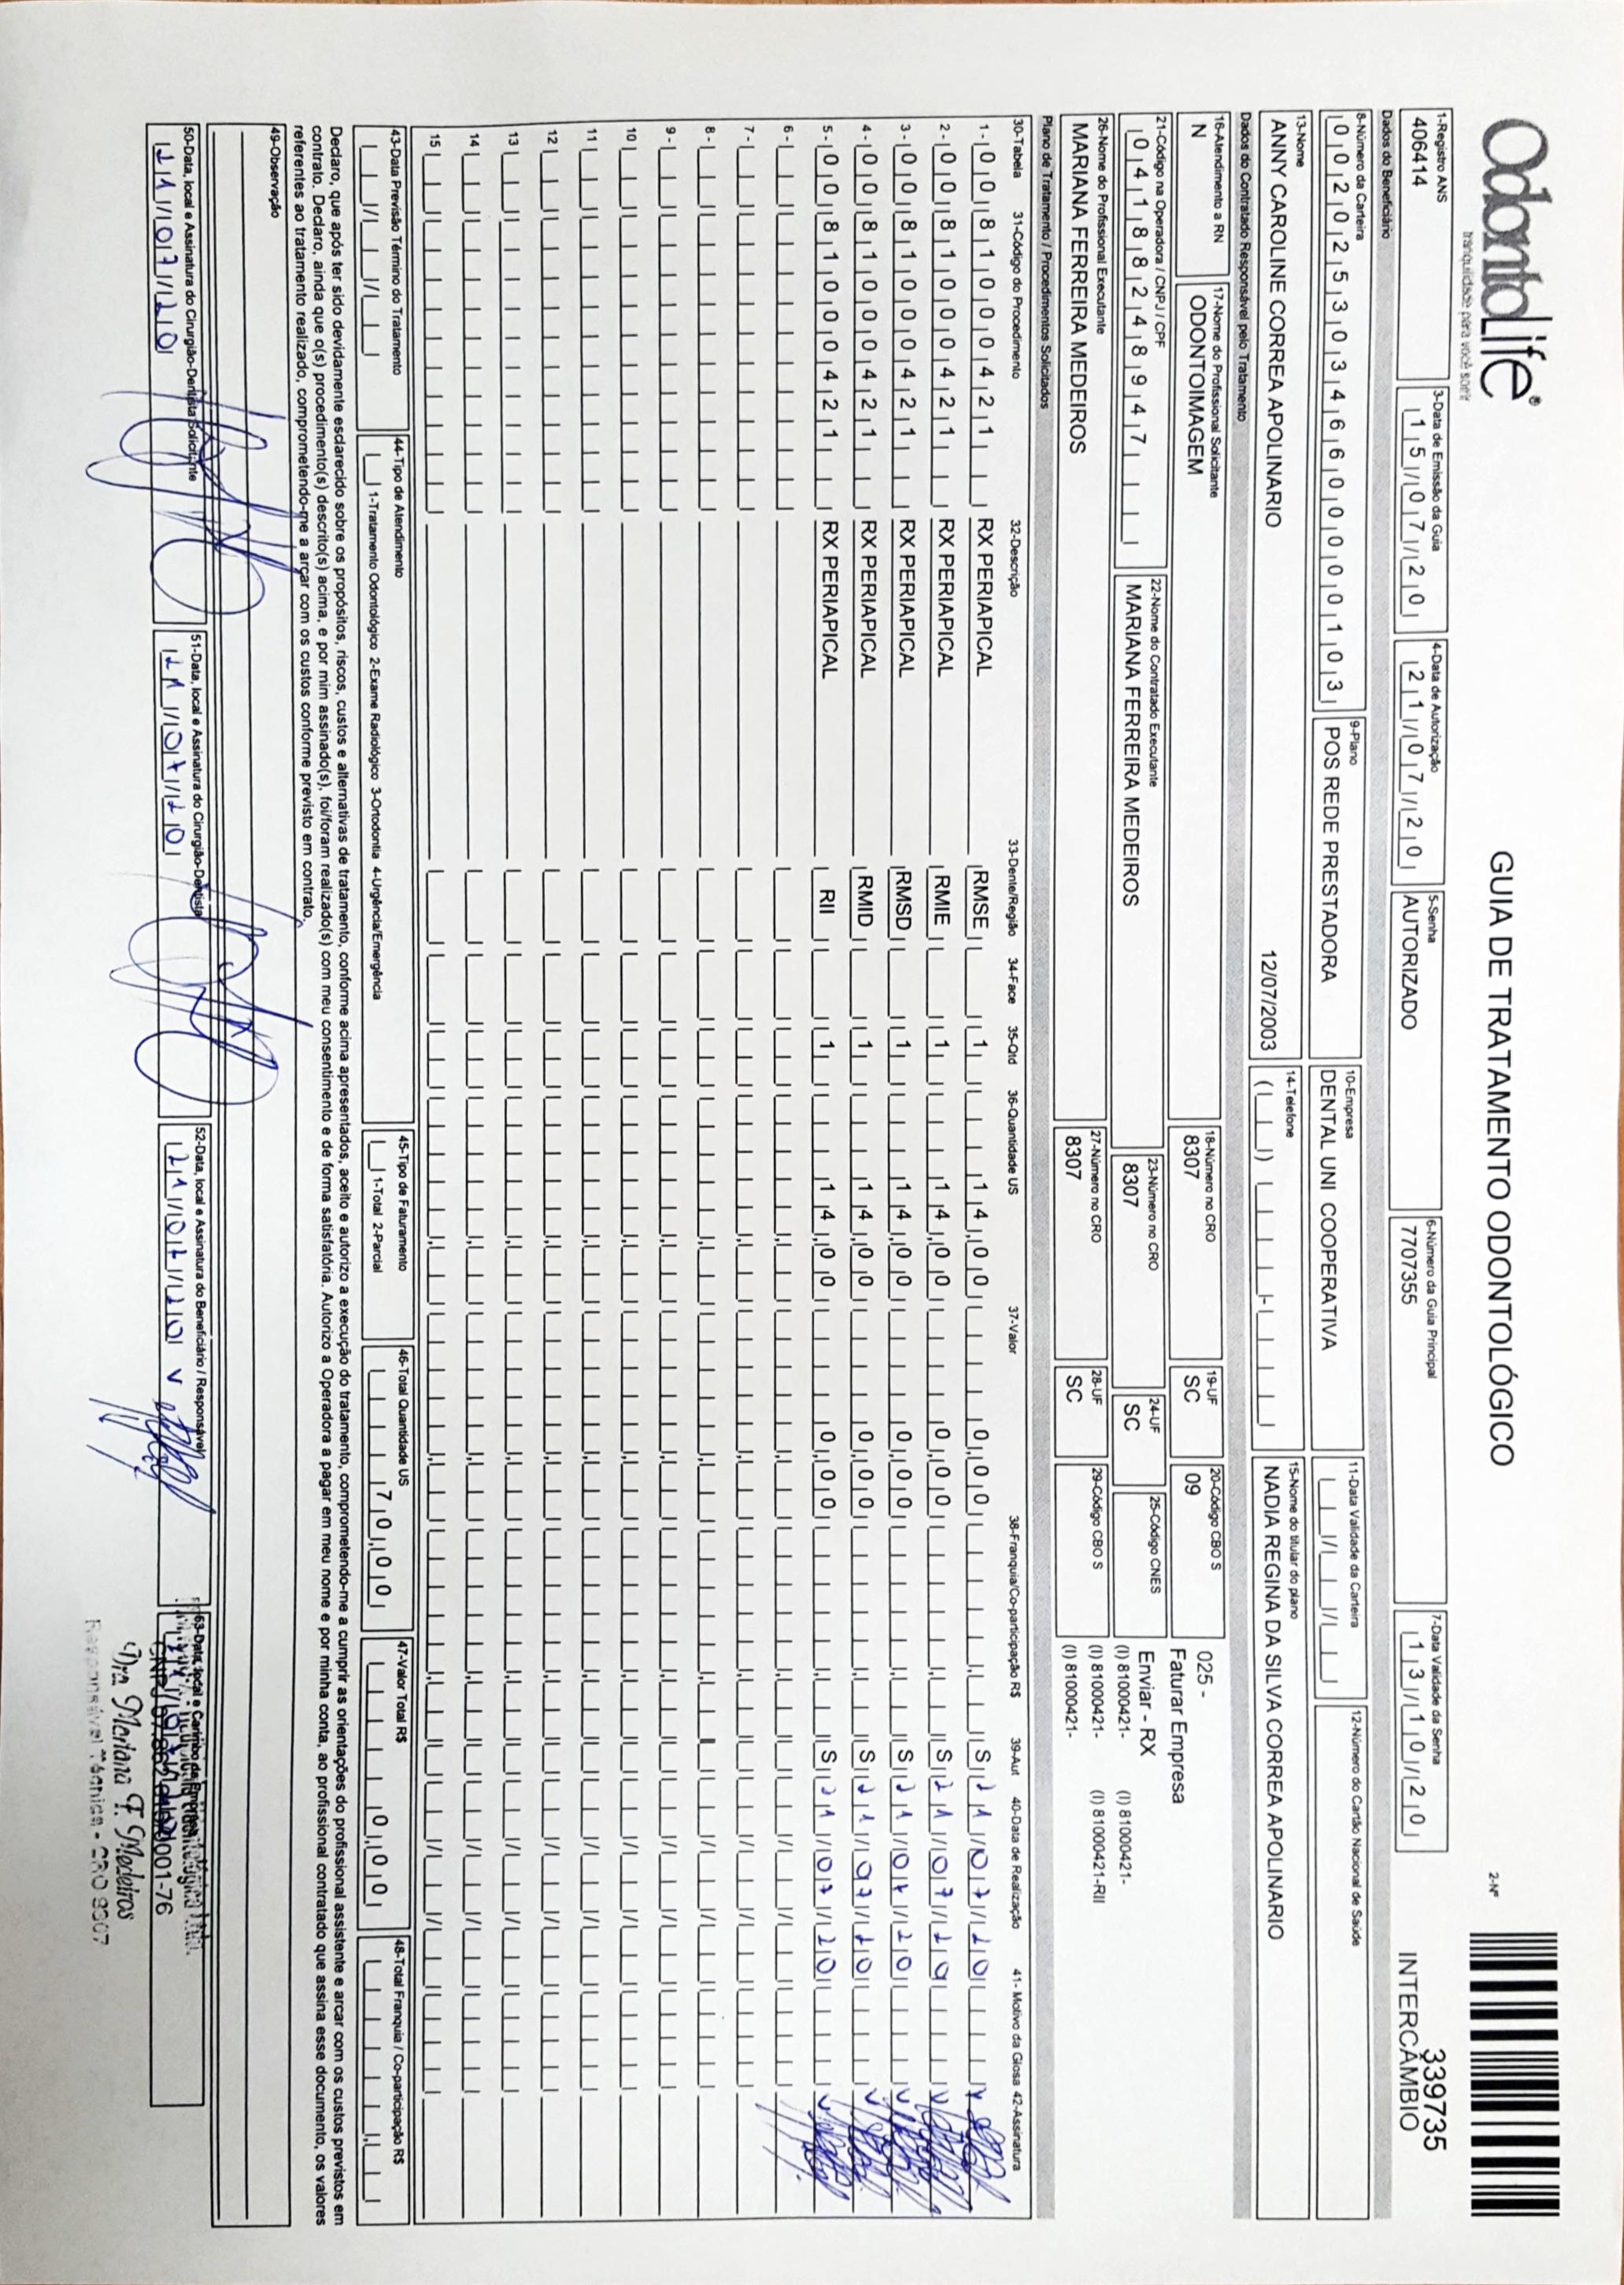 OdontoLife®
tranquilidade para você sorrir
GUIA DE TRATAMENTO ODONTOLÓGICO
2-Nº
339735
INTERCÂMBIO
1-Registro ANS
406414
3-Data de Emissão da Guia
15/07/20
4-Data de Autorização
21/07/20
5-Senha
AUTORIZADO
6-Número da Guia Principal
7707355
7-Data Validade da Senha
13/10/20
Dados do Beneficiário
8-Número da Carteira
00202530346600000103
9-Plano
POS REDE PRESTADORA
10-Empresa
DENTAL UNI COOPERATIVA
11-Data Validade da Carteira
12-Número do Cartão Nacional de Saúde
13-Nome
ANNY CAROLINE CORREA APOLINARIO 12/07/2003
14-Telefone
15-Nome do titular do plano
NADIA REGINA DA SILVA CORREA APOLINARIO
Dados do Contratado Responsável pelo Tratamento
16-Atendimento a RN
N
17-Nome do Profissional Solicitante
ODONTOIMAGEM
18-Número no CRO
8307
19-UF
SC
20-Código CBO S
09
025 -
Faturar Empresa
21-Código na Operadora / CNPJ / CPF
04188248947
22-Nome do Contratado Executante
MARIANA FERREIRA MEDEIROS
23-Número no CRO
8307
24-UF
SC
25-Código CNES
Enviar - RX
(I) 81000421- (I) 81000421-
(I) 81000421- (I) 81000421-RII
(I) 81000421-
26-Nome do Profissional Executante
MARIANA FERREIRA MEDEIROS
27-Número no CRO
8307
28-UF
SC
29-Código CBO S
Plano de Tratamento / Procedimentos Solicitados
30-Tabela 31-Código do Procedimento 32-Descrição 33-Dente/Região 34-Face 35-Qtd 36-Quantidade US 37-Valor 38-Franquia/Co-participação R$ 39-Aut 40-Data de Realização 41- Motivo da Glosa 42-Assinatura
1- 00 81000421 RX PERIAPICAL RMSE 1 14,00 0,00 S 21/07/20
2- 00 81000421 RX PERIAPICAL RMIE 1 14,00 0,00 S 21/07/20
3- 00 81000421 RX PERIAPICAL RMSD 1 14,00 0,00 S 21/07/20
4- 00 81000421 RX PERIAPICAL RMID 1 14,00 0,00 S 21/07/20
5- 00 81000421 RX PERIAPICAL RII 1 14,00 0,00 S 21/07/20
6-
7-
8-
9-
10
11
12
13
14
15
43-Data Previsão Término do Tratamento
44-Tipo de Atendimento
1-Tratamento Odontológico 2-Exame Radiológico 3-Ortodontia 4-Urgência/Emergência
45-Tipo de Faturamento
1-Total 2-Parcial
46-Total Quantidade US
70,00
47-Valor Total R$
0,00
48-Total Franquia / Co-participação R$
Declaro, que após ter sido devidamente esclarecido sobre os propósitos, riscos, custos e alternativas de tratamento, conforme acima apresentados, aceito e autorizo a execução do tratamento, comprometendo-me a cumprir as orientações do profissional assistente e arcar com os custos previstos em
contrato. Declaro, ainda que o(s) procedimento(s) descrito(s) acima, e por mim assinado(s), foi/foram realizado(s) com meu consentimento e de forma satisfatória. Autorizo a Operadora a pagar em meu nome e por minha conta, ao profissional contratado que assina esse documento, os valores
referentes ao tratamento realizado, comprometendo-me a arcar com os custos conforme previsto em contrato.
49-Observação
50-Data, local e Assinatura do Cirurgião-Dentista Solicitante
21/07/20
51-Data, local e Assinatura do Cirurgião-Dentista
21/07/20
52-Data, local e Assinatura do Beneficiário / Responsável
21/07/20
53-Data, local e Carimbo da Empresa
0001-76
Dra Mariana F. Medeiros
Responsável Técnica - CRO 8307